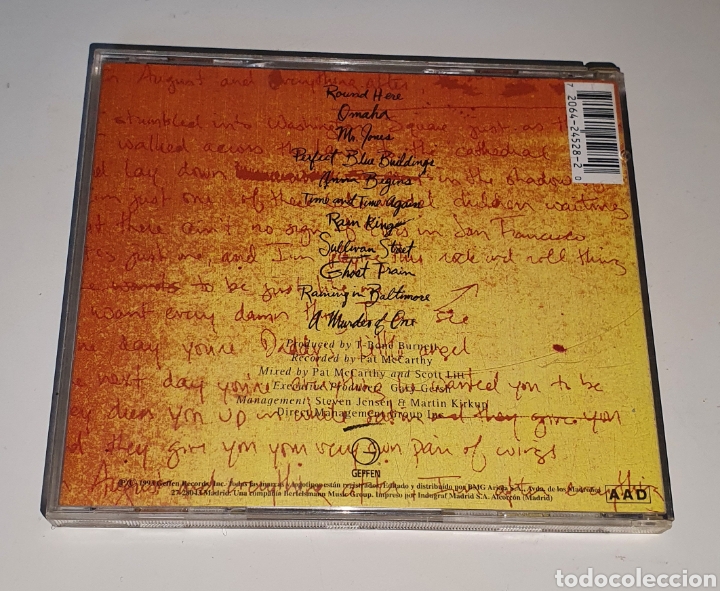 August and everything after
Round Here
Omaha
Mr. Jones
Perfect Blue Buildings
Anna Begins
Time and Time Again
Rain King
Sullivan Street
Ghost Train
Raining in Baltimore
A Murder of One
stumbled into Washington square just as the
walked across the cathedral
lay down in the shadow
just one of these children waiting
there ain't no sign of in San Francisco
just me, and I'm this rock and roll thing
to be just
want every damn thing I see
one day you're Daddy's angel
next day you're wanted you to be
they dress you up in white and they give you
they give you your very own pair of wings
Produced by T-Bone Burnett
Recorded by Pat McCarthy
Mixed by Pat McCarthy and Scott Litt
Executive Producer Gary Gersh
Management: Steven Jensen & Martin Kirkup
Direct Management Group Inc
GEFFEN
1993 Geffen Records Inc. Todas las marcas y logotipos están registrados. Editado y distribuido por BMG Ariola S.A. Avda. de los Madroños
27-28043 Madrid. Una compañía Bertelsmann Music Group. Impreso por Indugraf Madrid S.A. Alcorcón (Madrid)
AAD
7 20642-24528-2 0
todocoleccion